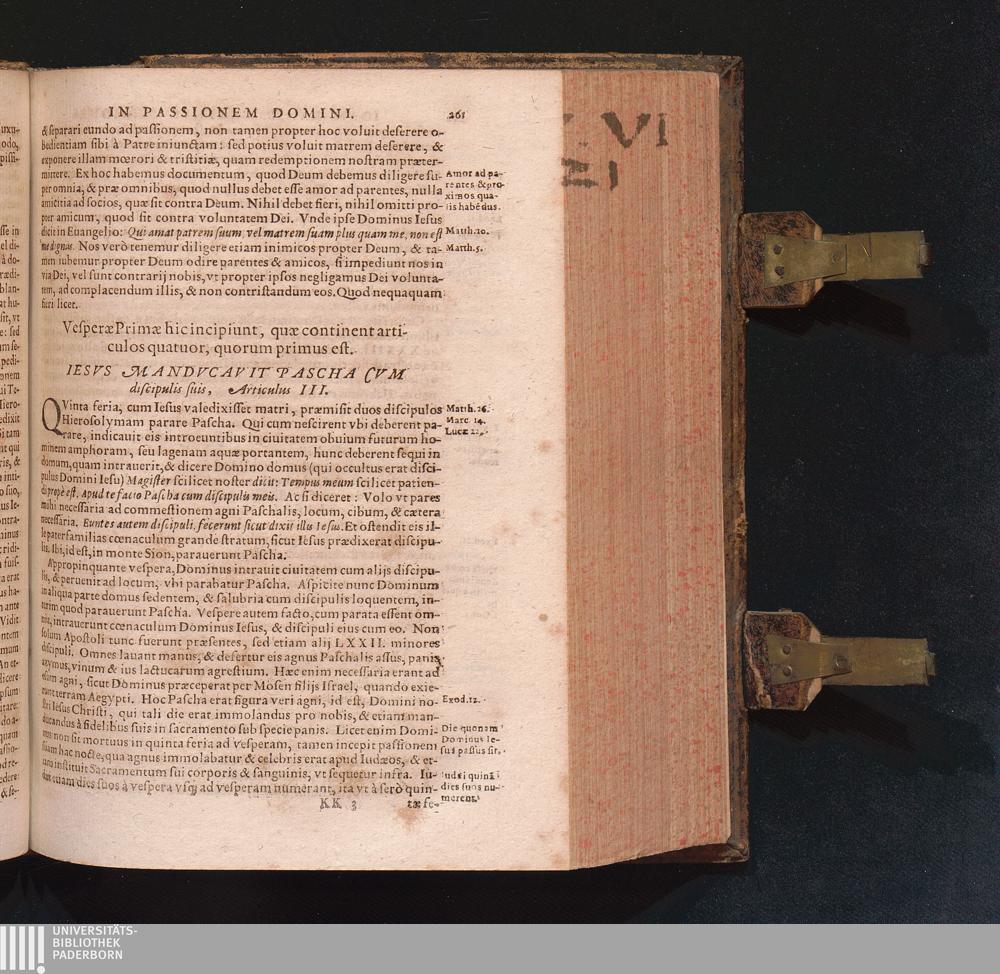 IN PASSIONEM DOMINI. 261
& separari eundo ad passionem, non tamen propter hoc voluit deserere o-
bedientiam sibi à Patre iniunctam: sed potius voluit matrem deserere, &
exponere illam mœrori & tristitiæ, quam redemptionem nostram præter-
mittere. Ex hoc habemus documentum, quod Deum debemus diligere su-
per omnia, & præ omnibus, quod nullus debet esse amor ad parentes, nulla
amicitia ad socios, quæ sit contra Deum. Nihil debet fieri, nihil omitti pro-
pter amicum, quod sit contra voluntatem Dei. Vnde ipse Dominus Iesus
dicit in Euangelio: Qui amat patrem suum, vel matrem suam plus quam me, non est
me dignus. Nos verò tenemur diligere etiam inimicos propter Deum, & ta-
men iubemur propter Deum odire parentes & amicos, si impediunt nos in
via Dei, vel sunt contrarij nobis, vt propter ipsos negligamus Dei volunta-
tem, ad complacendum illis, & non contristandum eos. Quod nequaquam
fieri licet.
Amor ad pa-
rentes & pro-
ximos qua-
lis habēdus.
Matth. 10.
Matth. 5.
Vesperæ Primæ hic incipiunt, quæ continent arti-
culos quatuor, quorum primus est.
IESVS MANDVCAVIT PASCHA CVM
discipulis suis, Articulus III.
QVinta feria, cum Iesus valedixisset matri, præmisit duos discipulos
Hierosolymam parare Pascha. Qui cum nescirent vbi deberent pa-
rare, indicauit eis introeuntibus in ciuitatem obuium futurum ho-
minem amphoram, seu lagenam aquæ portantem, hunc deberent sequi in
domum, quam intrauerit, & dicere Domino domus (qui occultus erat disci-
pulus Domini Iesu) Magister scilicet noster dicit: Tempus meum scilicet patien-
di propè est. Apud te facio Pascha cum discipulis meis. Ac si diceret: Volo vt pares
mihi necessaria ad commestionem agni Paschalis, locum, cibum, & cætera
necessaria. Euntes autem discipuli, fecerunt sicut dixit illis Iesus. Et ostendit eis il-
le paterfamilias cœnaculum grande stratum, sicut Iesus prædixerat discipu-
lis. Ibi, id est, in monte Sion, parauerunt Pascha.
Appropinquante vespera, Dominus intrauit ciuitatem cum alijs discipu-
lis, & peruenit ad locum, vbi parabatur Pascha. Aspicite nunc Dominum
in aliqua parte domus sedentem, & salubria cum discipulis loquentem, in-
terim quod parauerunt Pascha. Vespere autem facto, cum parata essent om-
nia, intrauerunt cœnaculum Dominus Iesus, & discipuli eius cum eo. Non
solum Apostoli tunc fuerunt præsentes, sed etiam alij LXXII. minores
discipuli. Omnes lauant manus, & defertur eis agnus Paschalis assus, panis
azymus, vinum & ius lactucarum agrestium. Hæc enim necessaria erant ad
esum agni, sicut Dominus præceperat per Mosen filijs Israel, quando exie-
runt terram Aegypti. Hoc Pascha erat figura veri agni, id est, Domini no-
stri Iesus Christi, qui tali die erat immolandus pro nobis, & etiam man-
ducandus à fidelibus suis in sacramento sub specie panis. Licet enim Domi-
nus non sit mortuus in quinta feria ad vesperam, tamen incepit passionem
suam hac nocte, qua agnus immolabatur & celebris erat apud Iudæos, & et-
iam instituit Sacramentum sui corporis & sanguinis, vt sequetur infra. Iu-
dæi etiam dies suos à vespera vsq; ad vesperam numerant, ita vt à serò quin-
KK 3 tæ fe-
Matth. 26.
Marc. 14.
Lucæ 22.
Exod. 12.
Die quonam
Dominus Ie-
sus passus sit.
Iudæi quinā
dies suos nu-
merent.
VI
UNIVERSITÄTS-
BIBLIOTHEK
PADERBORN